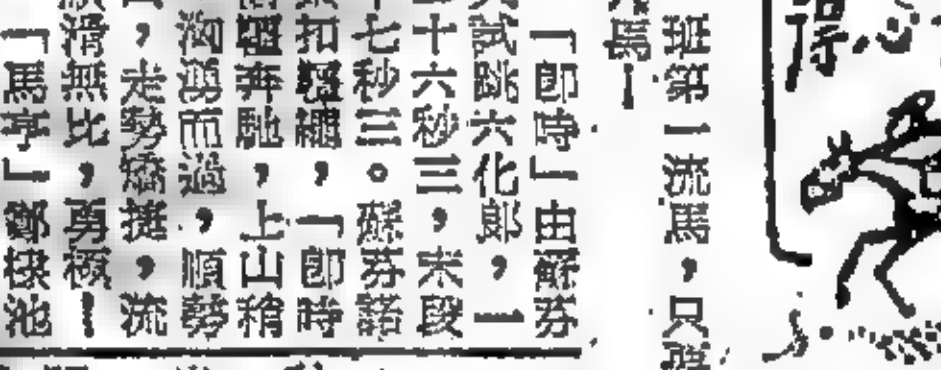 得心
班第一流馬，只
馬一
「卽時」由蘇芬
試跳六化郞，一
十六秒三，末段
七秒三。蘇芬諾
扣韁繩，「卽時
奔馳，上山稍
洶湧而過，順勢
，走勢矯挺，流
滑無比，勇極！
「馬亨」鄭棣池